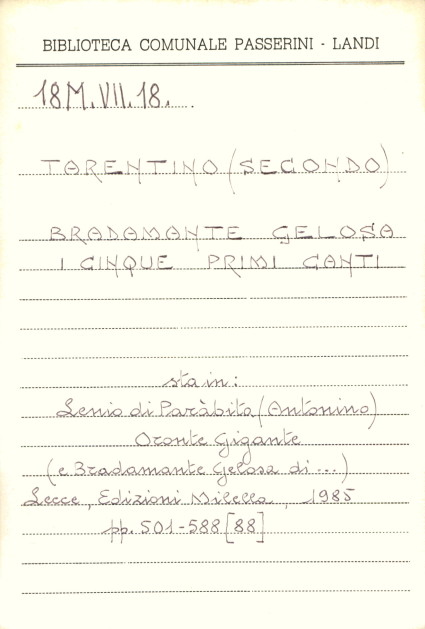 BIBLIOTECA COMUNALE PASSERINI - LANDI
18M.VII.18.
TARENTINO (SECONDO)
BRADAMANTE GELOSA
I CINQUE PRIMI CANTI
sta in:
Lenio di Paràbita (Antonino)
Oronte Gigante
(e Bradamante Gelosa di ...)
Lecce, Edizioni Milella, 1985
pp. 501-588 [88]